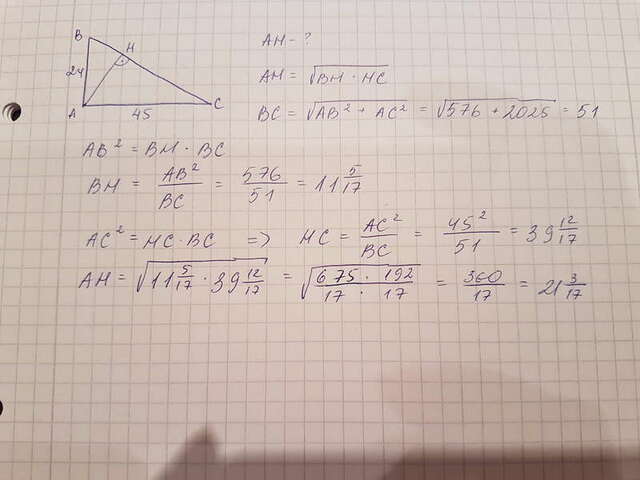 B
H
24
A
45
C
AH - ?
AH = √(BH · HC)
BC = √(AB² + AC²) = √(576 + 2025) = 51
AB² = BH · BC
BH = AB²/BC = 576/51 = 11 5/17
AC² = HC · BC => HC = AC²/BC = 45²/51 = 39 12/17
AH = √(11 5/17 · 39 12/17) = √(675 · 192 / 17 · 17) = 360/17 = 21 3/17